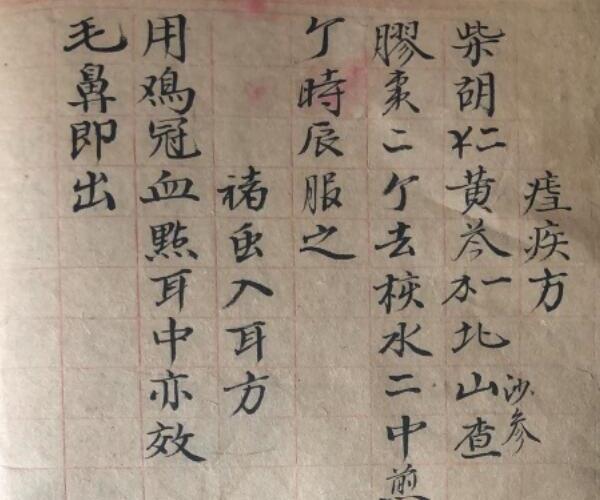 疾方
柴胡二黄芩一北山查
沙参
膠枣二亇去核水二中煎
亇時辰服之
褚虫入耳方
用鸡冠血點耳中亦效
毛鼻即出